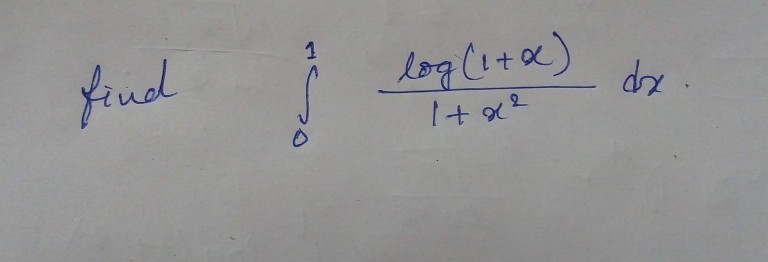 find ∫₀¹ log(1+x) / 1+x² dx.